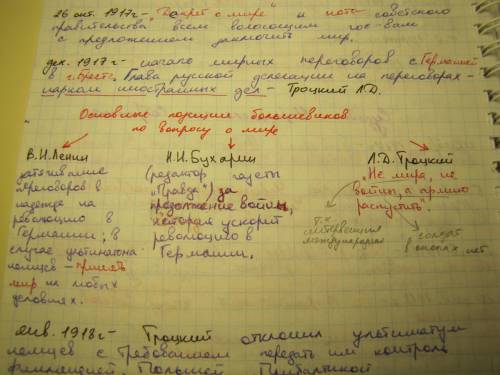 26 окт. 1917г - "Декрет о мире" и нота советского
правительства всем воюющим гос-вам
с предложением заключить мир.
дек. 1917г - начало мирных переговоров с Германией
в г. Брест. Глава русской делегации на переговорах -
нарком иностранных дел - Троцкий Л.Д.
Основные позиции большевиков
по вопросу о мире
В.И. Ленин
затягивание
переговоров в
надежде на
революцию в
Германии; в
случае ультиматома
немцев - принять
мир на любых
условиях.
Н.И. Бухарин
(редактор газеты
"Правда") за
продолжение войны,
которая ускорит
революцию в
Германии.
Л.Д. Троцкий
"Ни мира, ни
войны, а армию
распустить".
интервенция
международная
солдат
в окопах нет
янв. 1918г - Троцкий отклонил ультиматум
немцев с требованием передать им контроль
Финляндией, Польшей, Прибалтикой